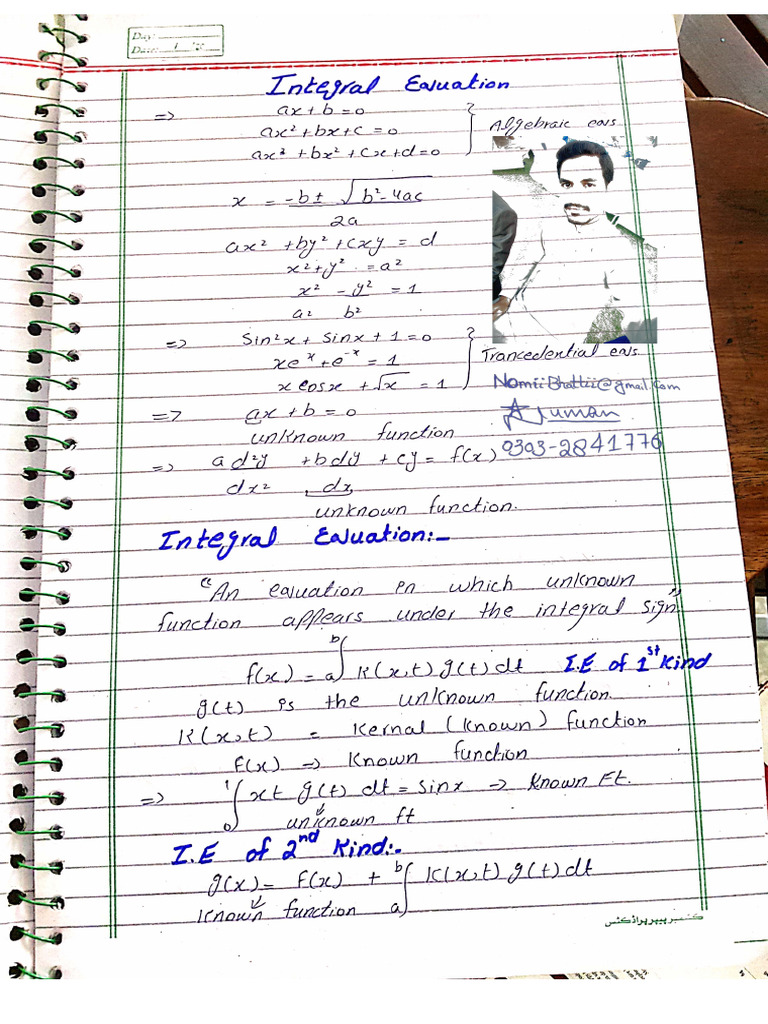 Day:
Date: 1 '20
Integral Eauation
=> ax + b = 0
ax² + bx + c = 0
ax³ + bx² + cx + d = 0 } Algebraic eaus
x = -b ± √(b² - 4ac)
2a
ax² + by² + cxy = d
x² + y² = a²
x² - y² = 1
a² b²
=> Sin²x + Sinx + 1 = 0
xe^x + e^-x = 1
x cosx + √x = 1 } Trancedential eaus
NomiiBhattii@gmail.com
=> ax + b = 0
unknown function
0303-2841776
=> a d²y + b dy + cy = f(x)
dx² dx
unknown function.
Integral Eauation:-
"An eauation in which unknown
function appears under the integral sign"
f(x) = a∫b K(x,t) g(t) dt I.E of 1st Kind
g(t) is the unknown function
K(x,t) = Kernal (Known) function
f(x) → Known function
=> 0∫1 xt g(t) dt = Sinx → Known Ft.
unknown ft
I.E of 2nd Kind:-
g(x) = f(x) + a∫b K(x,t) g(t) dt
Known function
کشمیر پیپر پراڈکٹس